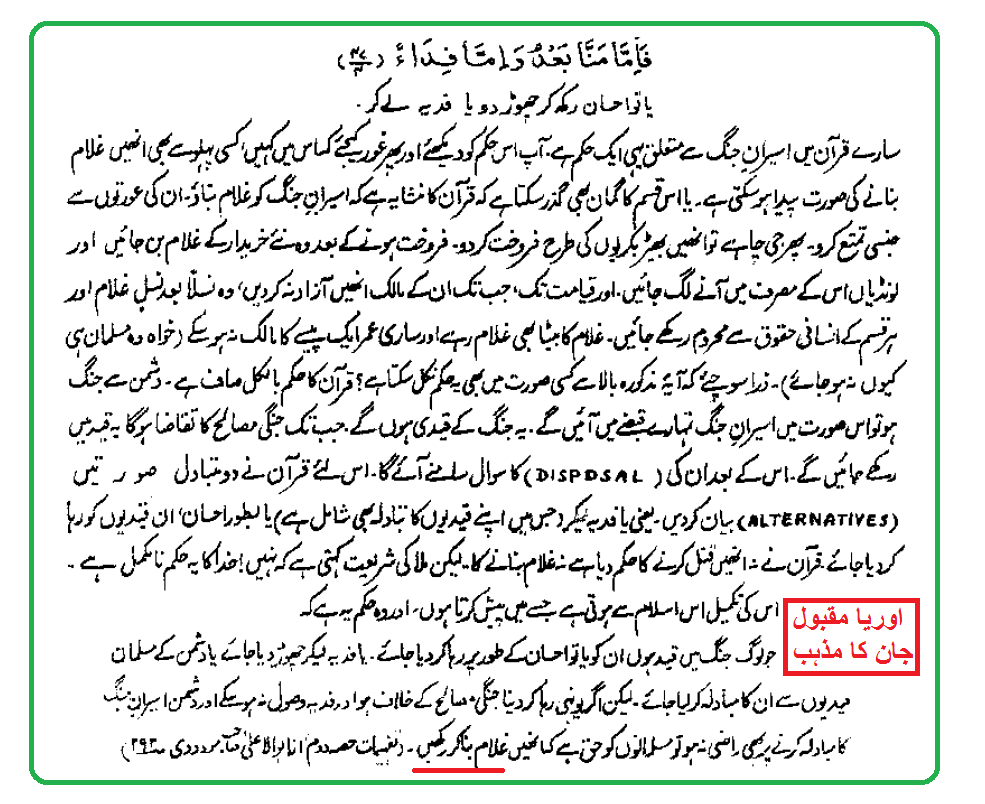 فَاِمَّا مَنًّا بَعْدُ وَاِمَّا فِدَاءً (۴۷/۴)
یا تو احسان رکھ کر چھوڑ دو یا فدیہ لے کر۔
سارے قرآن میں اسیرانِ جنگ سے متعلق یہی ایک حکم ہے۔ آپ اس حکم کو دیکھئے اور پھر غور کیجئے کہ اس میں کہیں، کسی پہلو سے بھی انھیں غلام
بنانے کی صورت پیدا ہو سکتی ہے۔ یا اس قسم کا گمان بھی گذر سکتا ہے کہ قرآن کا منشا یہ ہے کہ اسیرانِ جنگ کو غلام بناؤ۔ ان کی عورتوں سے
جنسی تمتع کرو۔ پھر جی چاہے تو انھیں بھیڑ بکریوں کی طرح فروخت کر دو۔ فروخت ہونے کے بعد وہ نئے خریدار کے غلام بن جائیں اور
لونڈیاں اس کے مصرف میں آنے لگ جائیں۔ اور قیامت تک، جب تک ان کے مالک انھیں آزاد نہ کر دیں، وہ نسلاً بعد نسلٍ غلام اور
ہر قسم کے انسانی حقوق سے محروم رکھے جائیں۔ غلام کا بیٹا بھی غلام رہے اور ساری عمر ایک پیسے کا مالک نہ ہو سکے (خواہ وہ مسلمان ہی
کیوں نہ ہو جائے)۔ ذرا سوچئے کہ آیۂ مذکورہ بالا سے کسی صورت میں بھی یہ حکم نکل سکتا ہے؟ قرآن کا حکم بالکل صاف ہے۔ دشمن سے جنگ
ہو تو اس صورت میں اسیرانِ جنگ تمہارے قبضے میں آئیں گے۔ یہ جنگ کے قیدی ہوں گے۔ جب تک جنگی مصالح کا تقاضا ہوگا یہ قید میں
رکھے جائیں گے۔ اس کے بعد ان کی (DISPDSAL) کا سوال سامنے آئے گا۔ اس لئے قرآن نے دو متبادل صورتیں
(ALTERNATIVES) بیان کر دیں۔ یعنی یا فدیہ لیکر (جس میں اپنے قیدیوں کا تبادلہ بھی شامل ہے) یا بطور احسان، ان قیدیوں کو رہا
کر دیا جائے۔ قرآن نے نہ انھیں قتل کرنے کا حکم دیا ہے نہ غلام بنانے کا۔ لیکن ملا کی شریعت کہتی ہے کہ نہیں! خدا کا یہ حکم نامکمل ہے۔
اس کی تکمیل اس اسلام سے ہوتی ہے جسے میں پیش کرتا ہوں۔ اور وہ حکم یہ ہے کہ
جو لوگ جنگ میں قید ہوں ان کو یا تو احسان کے طور پر رہا کر دیا جائے۔ یا فدیہ لیکر چھوڑ دیا جائے یا دشمن کے مسلمان
قیدیوں سے ان کا مبادلہ کر لیا جائے۔ لیکن اگر یونہی رہا کر دینا جنگی مصالح کے خلاف ہو اور فدیہ وصول نہ ہو سکے اور دشمن اسیرانِ جنگ
کا مبادلہ کرنے پر بھی راضی نہ ہو تو مسلمانوں کو حق ہے کہ انھیں غلام بنا کر رکھیں۔ (تفہیمات حصہ دوم از ابو الاعلیٰ صاحب مودودی ص۲۹۳)
اوریا مقبول
جان کا مذہب